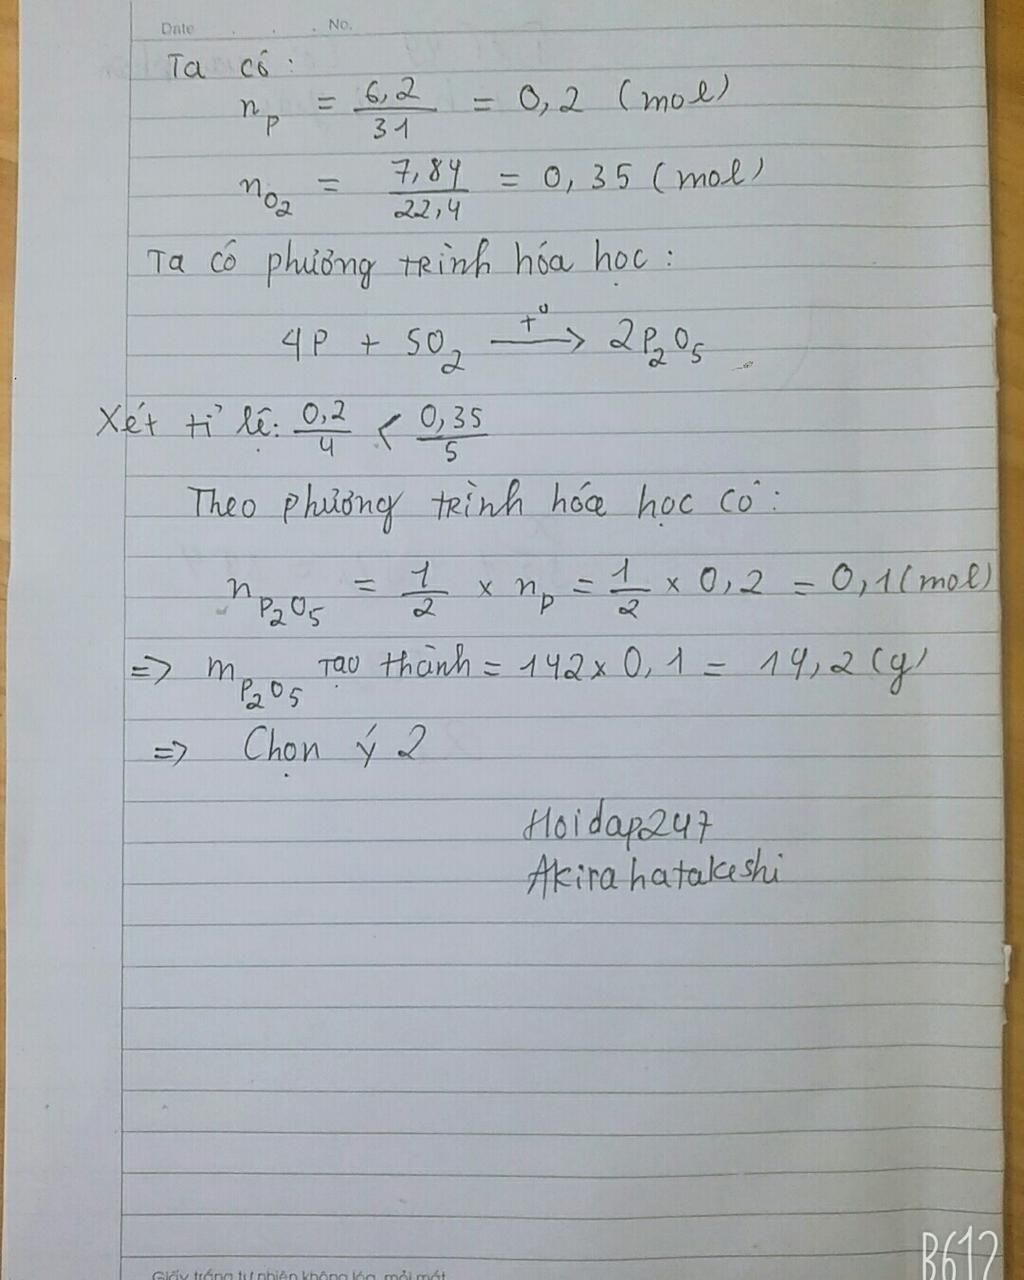 Date . . . No.
Ta có :
n_P = 6,2/31 = 0,2 (mol)
n_O2 = 7,84/22,4 = 0,35 (mol)
Ta có phương trình hóa học :
4P + 5O2 t⁰→ 2P2O5
Xét tỉ lệ: 0,2/4 < 0,35/5
Theo phương trình hóa học có :
n_P2O5 = 1/2 × n_P = 1/2 × 0,2 = 0,1 (mol)
=> m_P2O5 tạo thành = 142 × 0,1 = 14,2 (g)
=> Chọn ý 2
Hoidap247
Akira hatakeshi
Giấy trắng tự nhiên không lóa, mỏi mắt
B612